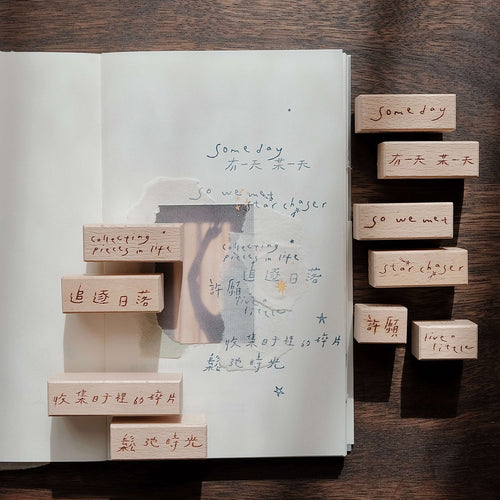 someday
有一天 某一天
so we met
star chaser
collecting
pieces in life
追逐日落
許願
live a
little
收集日子裡的碎片
鬆弛時光
someday
有一天 某一天
so we met
star chaser
collecting
pieces in life
追逐日落
許願
live a
little
收集日子裡的碎片
鬆弛時光